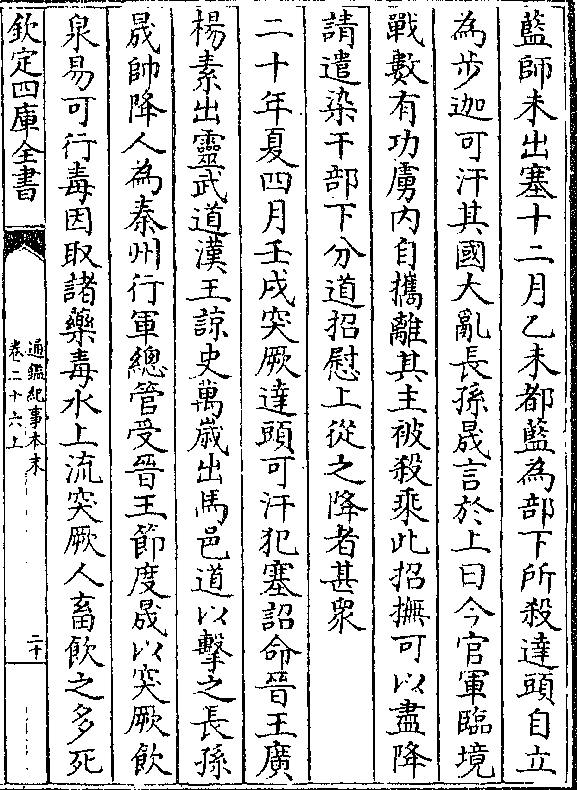 藍師未出塞十二月乙未都藍為部下所殺達頭自立
為步迦可汗其國大亂長孫晟言於上曰今官軍臨境
戰數有功虜内自攜離其主被殺乘此招撫可以盡降
請遣染干部下分道招慰上從之降者甚衆
二十年夏四月壬戌突厥達頭可汗犯塞詔命晉王廣
楊素出靈武道漢王諒史萬歲出馬邑道以擊之長孫
晟帥降人為秦州行軍總管受晉王節度晟以突厥飲
泉易可行毒因取諸藥毒水上流突厥人畜飲之多死
欽定四庫全書
通鑑紀事本末
卷二十六上
二十